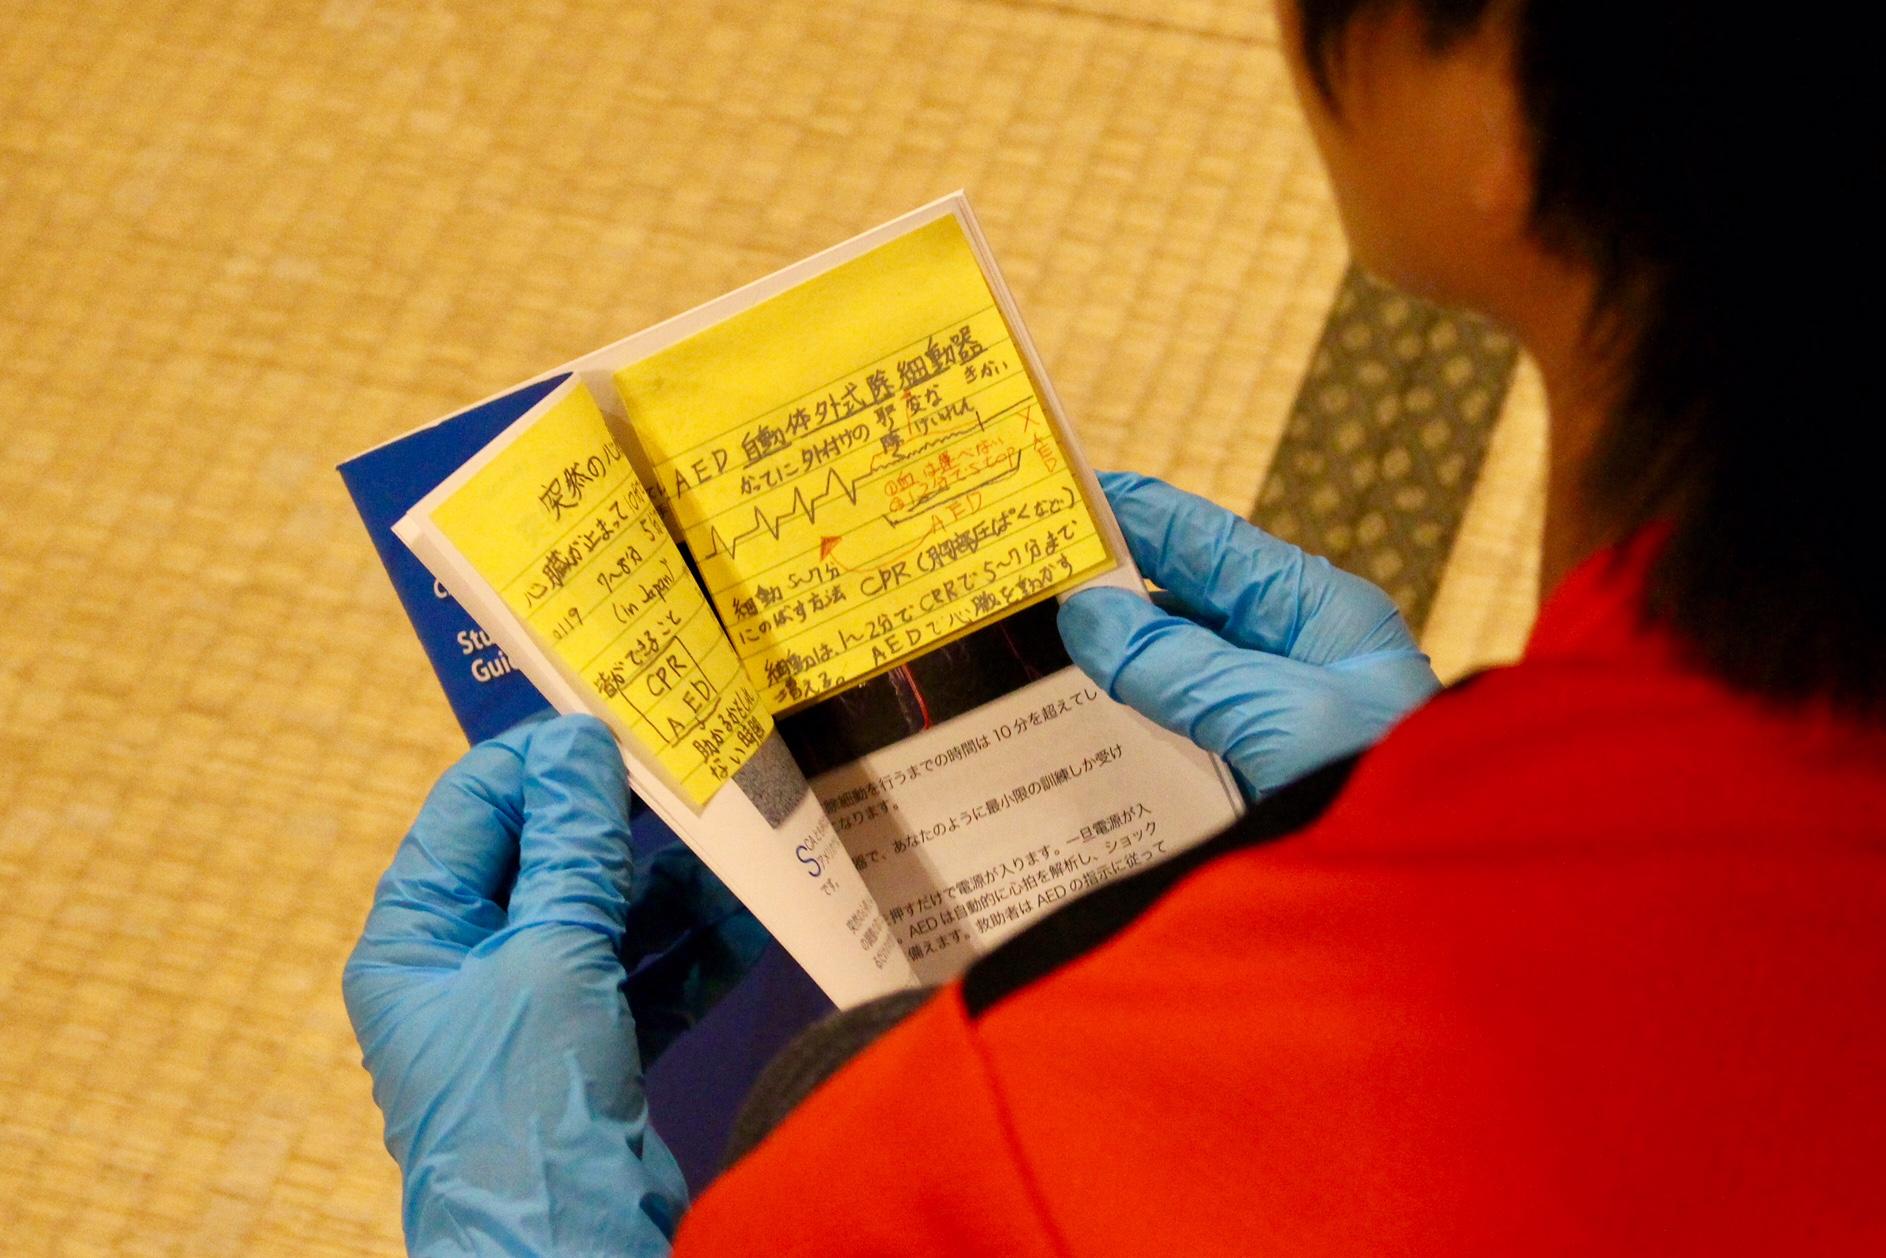 Stu
Gui
突然の心
心臓が止まって
119 7~8分 5
(in Japan)
皆ができること
CPR
AED
助かるかどうか
ない時間
AED 自動体外式除細動器
かってに外付けの 取 変な きかい
除 けいれん
①血は運べない
②12分でSTOP
X
AED
AED
細動 5~7分
にのばす方法 CPR (胸部圧ぱくなど)
細動は、1~2分で CPRで5~7分まで
増える。 AEDで心臓を動かす
除細動を行うまでの時間は 10 分を超えてし
なります。
器で、あなたのように最小限の訓練しか受け
押すだけで電源が入ります。一旦電源が入
。AED は自動的に心拍を解析し、ショック
備えます。救助者は AED の指示に従って
S
です。